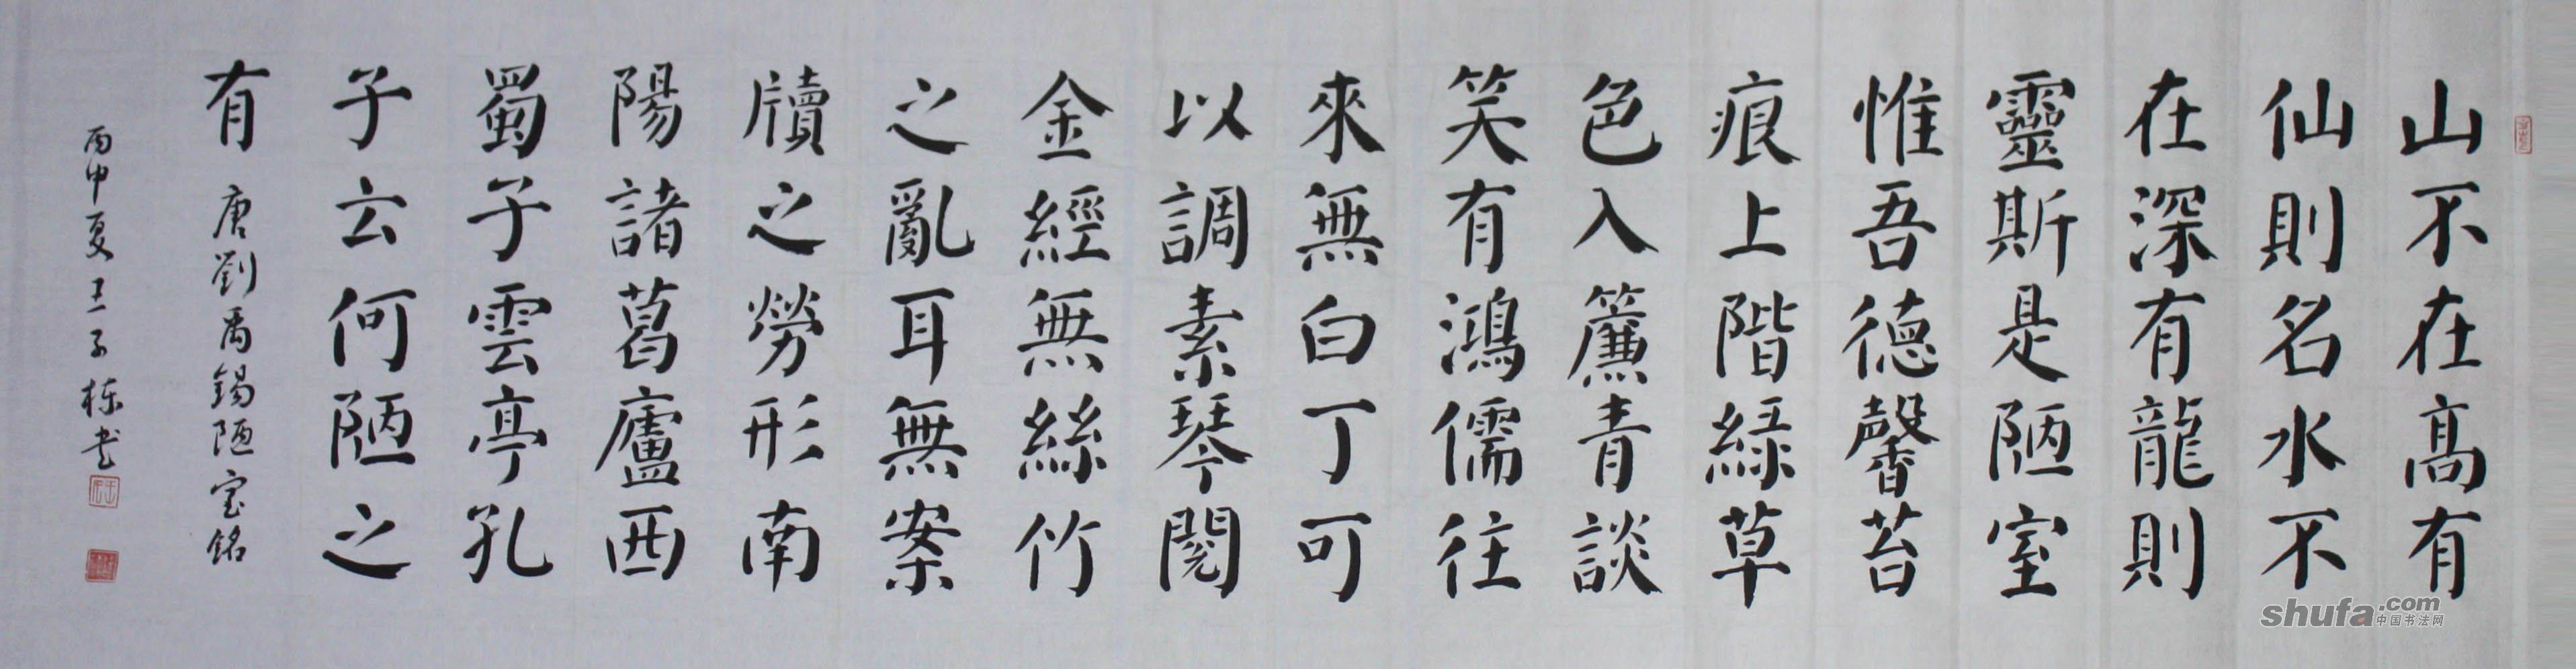 山不在高有
仙則名水不
在深有龍則
靈斯是陋室
惟吾德馨苔
痕上階綠草
色入簾青談
笑有鴻儒往
來無白丁可
以調素琴閱
金經無絲竹
之亂耳無案
牘之勞形南
陽諸葛廬西
蜀子雲亭孔
子云何陋之
有 唐劉禹錫陋室銘
丙申夏王子栋书
shufa.com
中国书法网